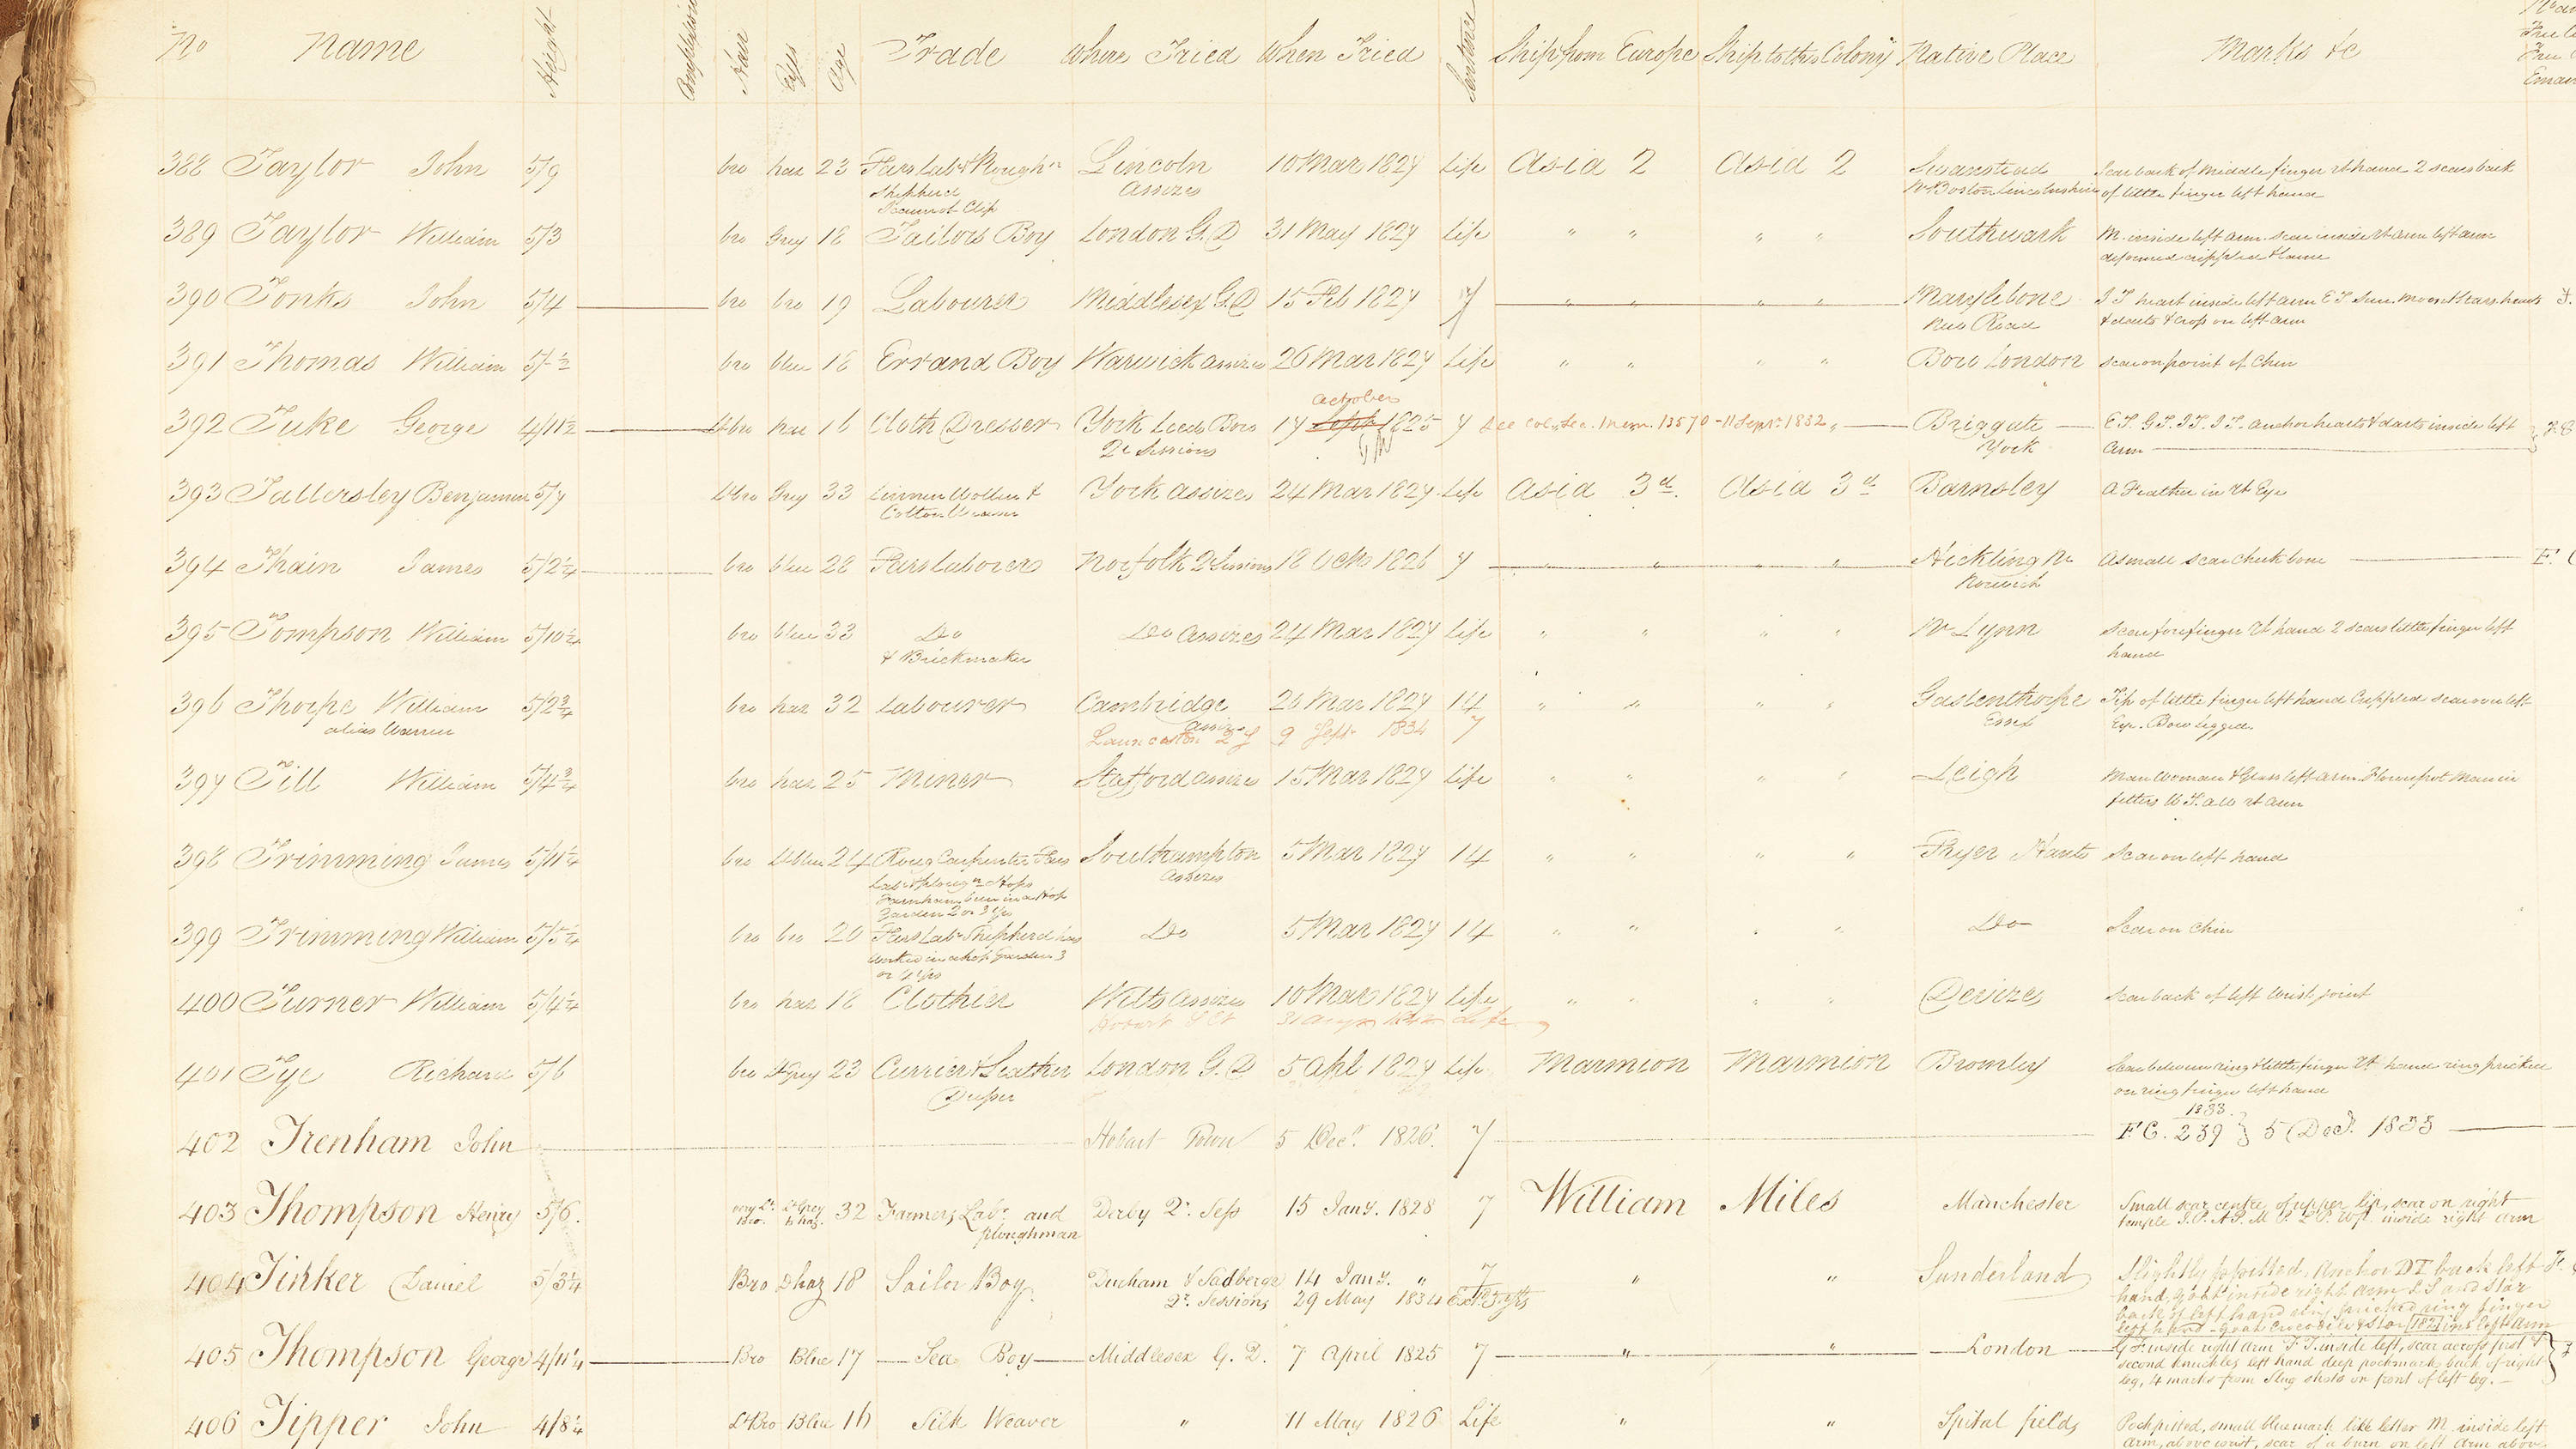 No Name Height Hair Eyes Age Trade Where Tried When Tried Sentence Ship from Europe Ship to this Colony Native Place Marks &c
388 Taylor John 5/9 bro haz 23 Fars Labr & Plough'n Lincoln 10 Mar 1827 Life Asia 2 Asia 2 Scar back of middle finger rt hand 2 scars back
Shepherd Assizes Nr Boston Lincolnshire of little finger left hand
Clip
389 Taylor William 5/3 bro Grey 18 Tailors Boy London G.D 31 May 1827 Life " " " " Southwark M. inside left arm. scar inside rt arm left arm
deformed crippled & lame
390 Tonks John 5/4 bro bro 19 Labourer Middlesex G.D 15 Feb 1827 7 " " " " Marylebone J T heart inside left arm E T Sun. Moon & Stars. hearts
New Road & darts & cross on left arm
391 Thomas William 5/ ½ bro blue 18 Errand Boy Warwick assizes 26 Mar 1827 Life " " " " Boro London scar on point of Chin
October
392 Tuke George 4/11½ Ltbro haz 16 Cloth Dresser York Leeds Boro 17 Sept 1825 7 See Col. Sec. Mem. 13570 - 11 Sepr 1832 " Briggate E T. G T. J T. J T. anchor hearts & darts inside left
Qr Sessions York arm
393 Tattersley Benjamin 5/7 Ltbro Grey 33 Linnen Wollen & York assizes 24 Mar 1827 Life Asia 3d. Asia 3d Barnsley A Feather in rt Eye
Cotton Weaver
394 Thain James 5/2¼ bro blue 28 Fars Labourer Norfolk 2 Sessions 18 Octr 1826 7 " " " " Hickling Nr A small scar cheek bone
Norwich
395 Tompson William 5/10¼ bro blue 33 Do Do Assizes 24 Mar 1827 Life " " " " Nr Lynn Scar forefinger rt hand 2 scars little finger left
& Brickmaker hand
396 Thorpe William 5/2¾ bro haz 32 Labourer Cambridge 26 Mar 1827 14 " " " " Gaslenthorpe Tip of little finger left hand Crippled scar over left
alias Warren assizes Essex Eye. Bow legged
Launceston 2 S 9 Sept 1834 7
397 Till William 5/4¾ bro haz 25 Miner Stafford assize 15 Mar 1827 Life " " " " Leigh Man Woman & Glass left arm. Flowerpot Man in
fetters W T. a W rt arm
398 Trimming James 5/11¼ bro 24 Roug Carpenter Fars Southampton 5 Mar 1827 14 " " " " Fryer Hants Scar on left hand
Labr & ploug'n Hops Assizes
Farnham been in a Hop
Garden 2 or 3 Yrs
399 Trimming William 5/5¼ bro bro 20 Fars Labr Shepherd has Do 5 Mar 1827 14 " " " " Do Scar on Chin
worked in a hop Garden 3
or 4 Yrs
400 Turner William 5/4¼ bro haz 18 Clothier Wilts Assizes 10 Mar 1827 Life " " " " Devizes Scar back of left wrist joint
Hobart S Ct 31 Life
401 Tye Richard 5/6 bro Dk Grey 23 Currier & Leather London G.D 5 Apl 1827 Life Marmion Marmion Bromley Scar between ring & little finger rt hand ring pricked
Dresser on ring finger left hand
1833.
402 Trenham John Hobart Town 5 Decr. 1826. 7 F C. 239 } 5 Decr. 1833
403 Thompson Henry 5/6. very Lt Bro. Lt Grey 32 Farmers Labr and Derby Qr. Sess 15 Jany. 1828 7 William Miles Manchester Small scar centre of upper lip, scar on right
ploughman temple inside right arm
404 Tinker Daniel 5/3¼ Bro D haz 18 Sailor Boy Durham & Sadberge 14 Jany. " 7 " " Sunderland Slightly p.pitted. Anchor D T back left
Qr. Sessions 29 May 1834 hand, inside right arm and Star
back of left hand ring pricked ring finger
left hand
405 Thompson George 4/11¼ Bro Blue 17 Sea Boy Middlesex G.D. 7 April 1825 7 " " London G T. inside right arm F T. inside left, scar across first &
second knuckles left hand deep pockmark back of right
leg, 4 marks from Slug shots on front of left leg.
406 Tipper John 4/8¼ LtBro Blue 16 Silk Weaver " 11 May 1826 Life " " Spital fields Pockpitted, small blue mark like letter M inside left
arm, above wrist, scar of a burn on left arm above